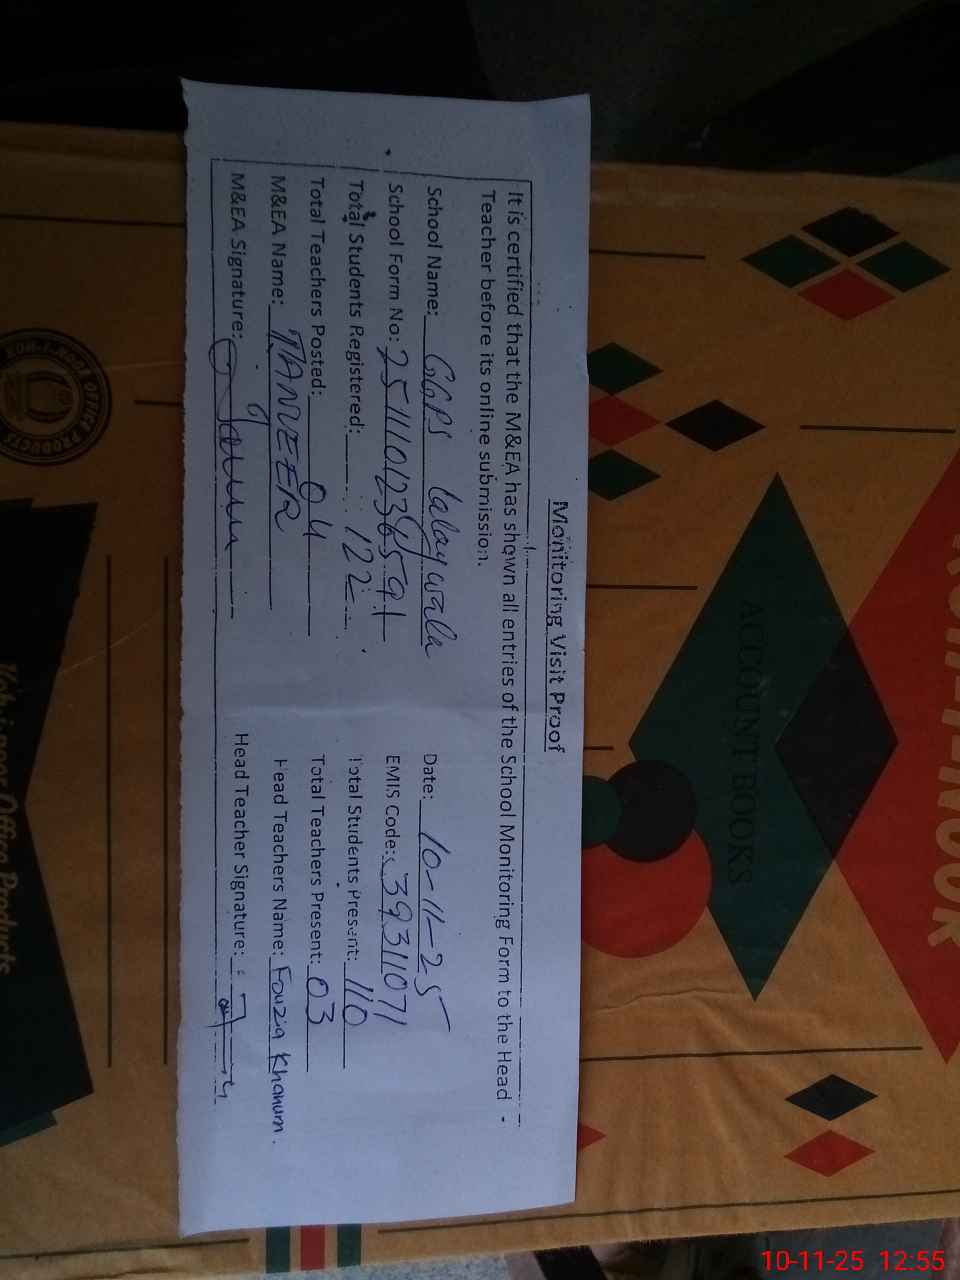 Monitoring Visit Proof
It is certified that the M&EA has shown all entries of the School Monitoring Form to the Head -
Teacher before its online submission.
School Name: GGPS Lalaywala Date: 10-11-25
School Form No: EMIS Code: 39311071
Total Students Registered: 122 Total Students Present: 110
Total Teachers Posted: 04 Total Teachers Present: 03
M&EA Name: TANVEER Head Teachers Name: Fouzia Khanum.
M&EA Signature: Head Teacher Signature:
ACCOUNT BOOKS
KOH-I-NOOR OFFICE PRODUCTS
Koh-i-noor Office Products
10-11-25 12:55